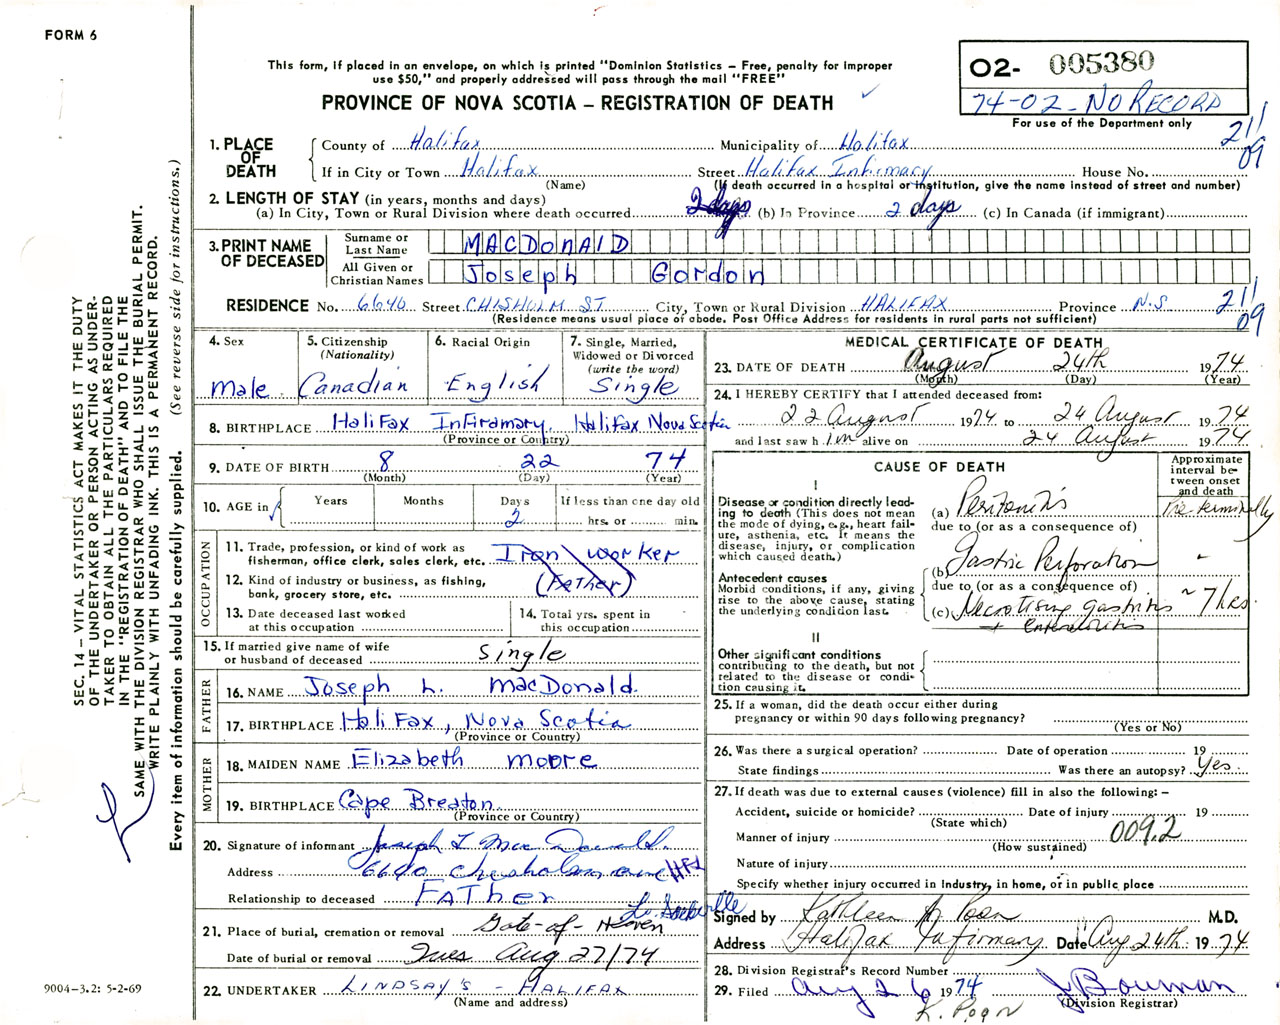 FORM 6
This form, if placed in an envelope, on which is printed "Dominion Statistics – Free, penalty for improper
use $50," and properly addressed will pass through the mail "FREE"
PROVINCE OF NOVA SCOTIA – REGISTRATION OF DEATH
O2- 005380
74-02-NO RECORD
For use of the Department only
211
09
1. PLACE OF DEATH
County of Halifax Municipality of Halifax
If in City or Town Halifax Street Halifax Infirmary House No.
(Name) (If death occurred in a hospital or institution, give the name instead of street and number)
2. LENGTH OF STAY (in years, months and days)
(a) In City, Town or Rural Division where death occurred 2 days (b) In Province 2 days (c) In Canada (if immigrant)
3. PRINT NAME OF DECEASED
Surname or Last Name MACDONALD
All Given or Christian Names Joseph Gordon
RESIDENCE No. 6640 Street CHISHOLM ST City, Town or Rural Division HALIFAX Province N.S
(Residence means usual place of abode. Post Office Address for residents in rural parts not sufficient)
211
09
4. Sex Male
5. Citizenship (Nationality) Canadian
6. Racial Origin English
7. Single, Married, Widowed or Divorced (write the word) Single
8. BIRTHPLACE Halifax Infirmary Halifax Nova Scotia
(Province or Country)
9. DATE OF BIRTH 8 22 74
(Month) (Day) (Year)
10. AGE in Years Months Days 2 If less than one day old
hrs. or min.
OCCUPATION
11. Trade, profession, or kind of work as fisherman, office clerk, sales clerk, etc. Iron worker
12. Kind of industry or business, as fishing, bank, grocery store, etc. (Father)
13. Date deceased last worked at this occupation
14. Total yrs. spent in this occupation
15. If married give name of wife or husband of deceased Single
FATHER
16. NAME Joseph L. MacDonald
17. BIRTHPLACE Halifax, Nova Scotia
(Province or Country)
MOTHER
18. MAIDEN NAME Elizabeth Moore
19. BIRTHPLACE Cape Breton
(Province or Country)
20. Signature of informant Joseph L MacDonald
Address 6640 Chisholm ave HFX
Relationship to deceased FATHER
21. Place of burial, cremation or removal Gate-of-Heven Lr. Sackville
Date of burial or removal Tues Aug 27/74
22. UNDERTAKER LINDSAY'S - HALIFAX
(Name and address)
MEDICAL CERTIFICATE OF DEATH
23. DATE OF DEATH August 24th 1974
(Month) (Day) (Year)
24. I HEREBY CERTIFY that I attended deceased from:
22 August 1974 to 24 August 1974
and last saw him alive on 24 August 1974
CAUSE OF DEATH
Approximate interval between onset and death
I
Disease or condition directly leading to death (This does not mean the mode of dying, e.g., heart failure, asthenia, etc. It means the disease, injury, or complication which caused death.)
(a) Peritonitis Pre terminally
due to (or as a consequence of)
(b) Gastric Perforation "
Antecedent causes
Morbid conditions, if any, giving rise to the above cause, stating the underlying condition last.
due to (or as a consequence of)
(c) Necrotising gastritis ~ 7 hrs.
+ enterocolitis
II
Other significant conditions contributing to the death, but not related to the disease or condition causing it.
25. If a woman, did the death occur either during pregnancy or within 90 days following pregnancy?
(Yes or No)
26. Was there a surgical operation? Date of operation 19
State findings Was there an autopsy? Yes
27. If death was due to external causes (violence) fill in also the following: –
Accident, suicide or homicide? Date of injury 19
(State which)
Manner of injury 009.2
(How sustained)
Nature of injury
Specify whether injury occurred in industry, in home, or in public place
Signed by Kathleen M Poon M.D.
Address Halifax Infirmary Date Aug 24th 1974
28. Division Registrar's Record Number
29. Filed Aug 26 1974 J Bowman
(Division Registrar)
K. Poon
SEC. 14 – VITAL STATISTICS ACT MAKES IT THE DUTY
OF THE UNDERTAKER OR PERSON ACTING AS UNDER-
TAKER TO OBTAIN ALL THE PARTICULARS REQUIRED
IN THE "REGISTRATION OF DEATH" AND TO FILE THE
SAME WITH THE DIVISION REGISTRAR WHO SHALL ISSUE THE BURIAL PERMIT.
WRITE PLAINLY WITH UNFADING INK. THIS IS A PERMANENT RECORD.
Every item of information should be carefully supplied. (See reverse side for instructions.)
9004-3.2: 5-2-69